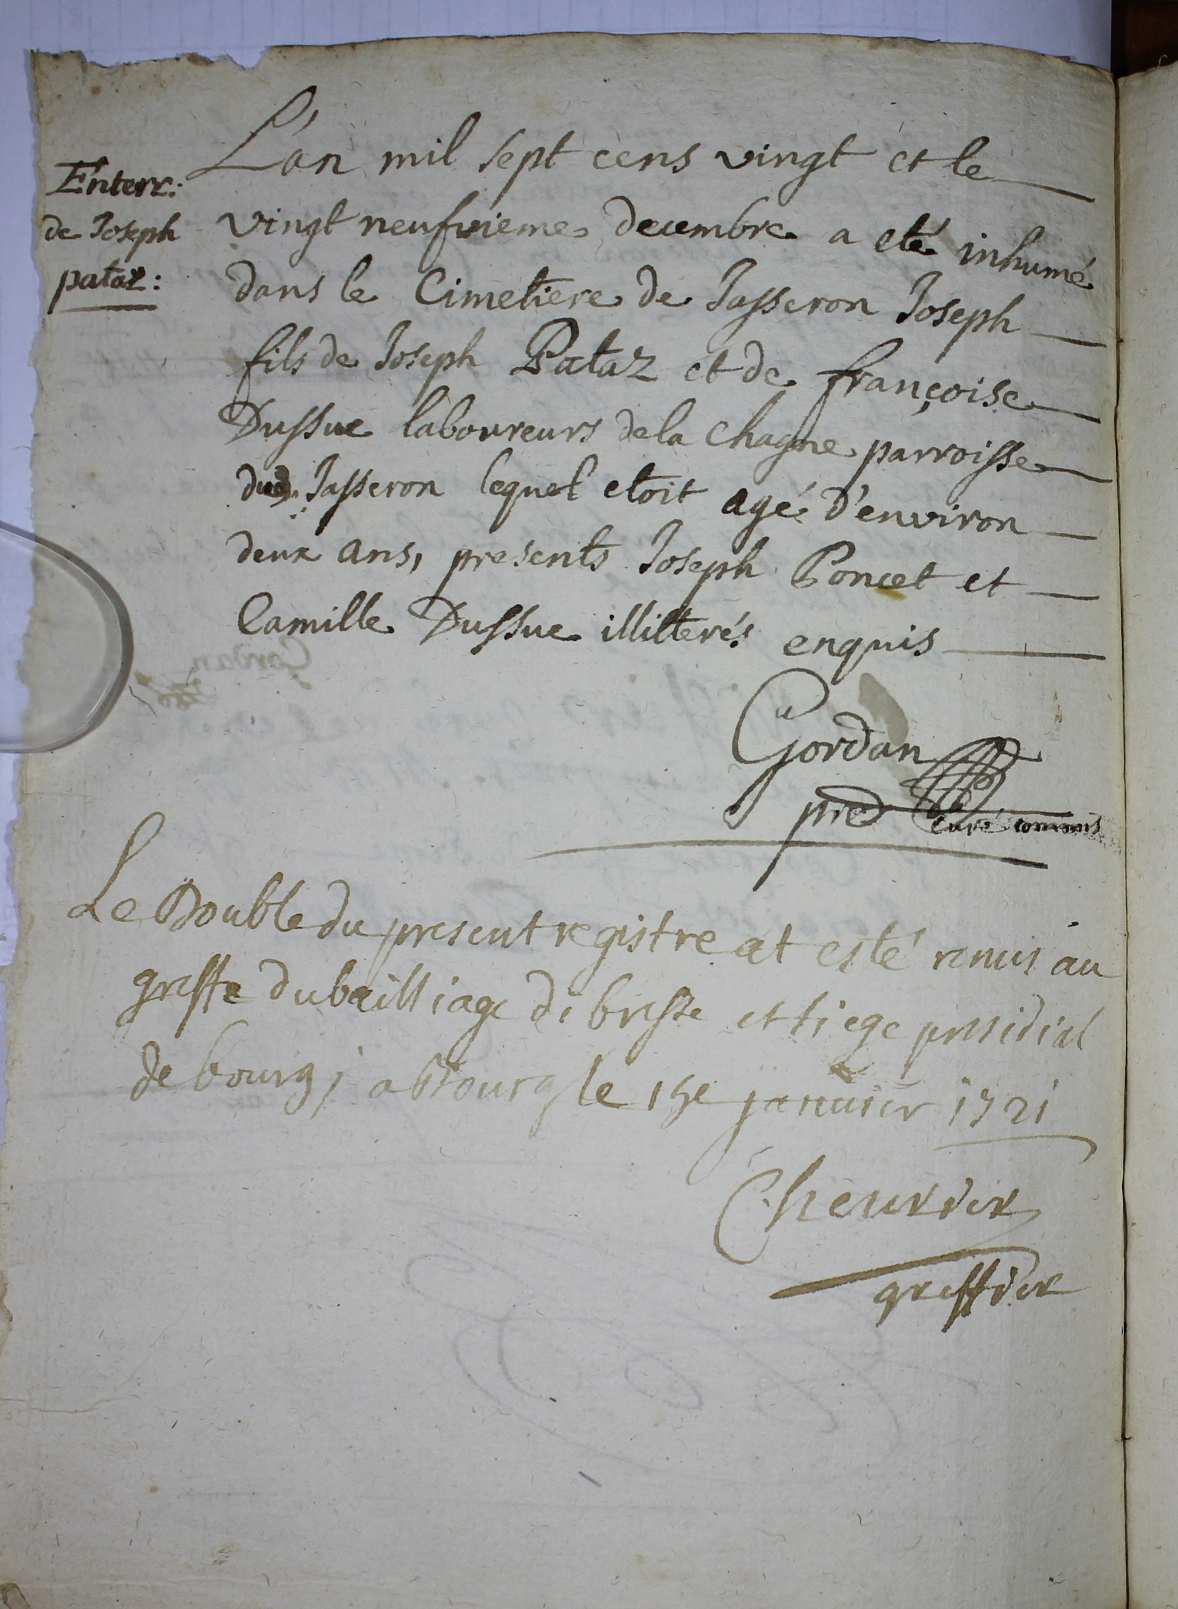 Enterr:
de Joseph
pataz:
L'an mil sept cens vingt et le
vingt neufvieme decembre a eté inhumé
dans le Cimetiere de Jasseron Joseph
fils de Joseph Pataz et de françoise
Dussue laboureurs de la Chagne parroisse
dud. Jasseron lequel etoit agé d'environ
deux ans, presents Joseph Poncet et
Camille Dussue illitterés enquis
Gordan
pred curé commis
Le Double du present registre at esté remis au
greffe du bailliage de bresse et siege presidial
de bourg, a bourg le janvier 1721
Cheurier
greffier